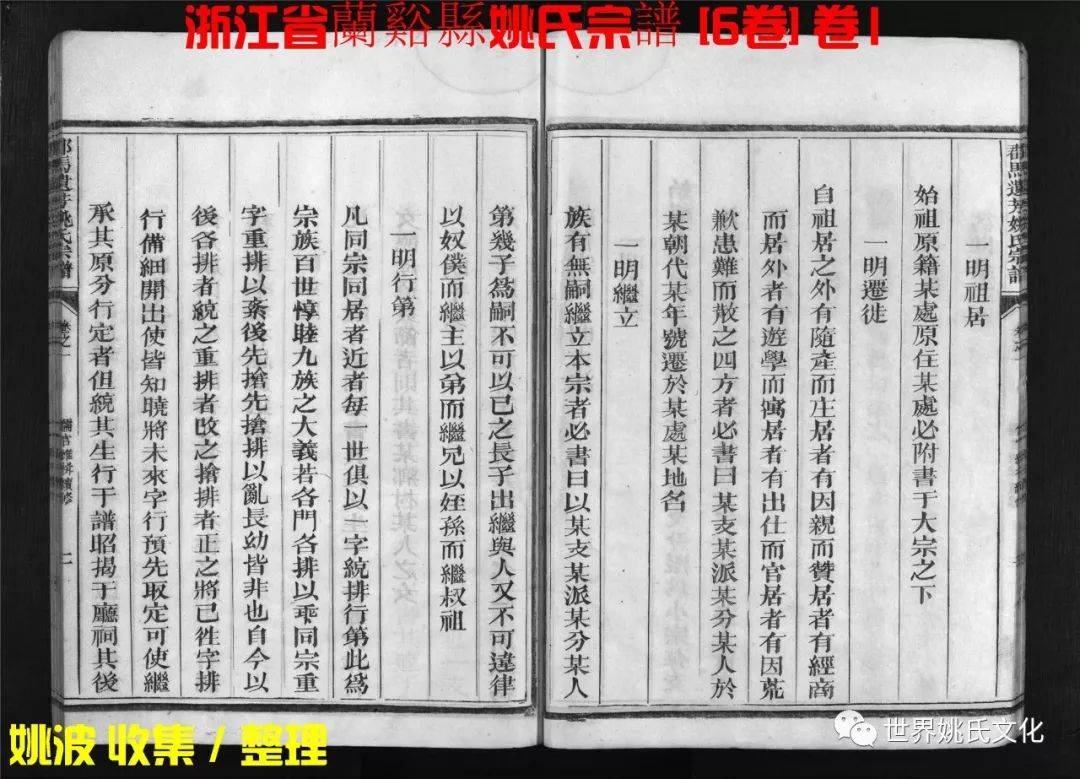 浙江省蘭谿縣姚氏宗譜 [6卷] 卷1
一明祖居
始祖原籍某處原住某處必附書于大宗之下
一明遷徙
自祖居之外有隨產而庄居者有因親而贅居者有經商
而居外者有遊學而寓居者有出仕而官居者有因荒
歉患難而散之四方者必書曰某支某派某分某人於
某朝代某年號遷於某處某地名
一明繼立
族有無嗣繼立本宗者必書曰以某支某派某分某人
第幾子為嗣不可以己之長子出繼與人又不可違律
以奴僕而繼主以弟而繼兄以姪孫而繼叔祖
一明行第
凡同宗同居者近者每一世俱以一字統排行第此為
宗族百世惇睦九族之大義若各門各排以乖同宗重
字重排以紊後先搶先搶排以亂長幼皆非也自今以
後各排者統之重排者改之搶排者正之將已徃字排
行備細開出使皆知曉將未來字行預先取定可使繼
承其原分行定者但統其生行于譜昭揭于廳祠其後
姚氏宗譜
卷之一
姚波 收集 / 整理
世界姚氏文化